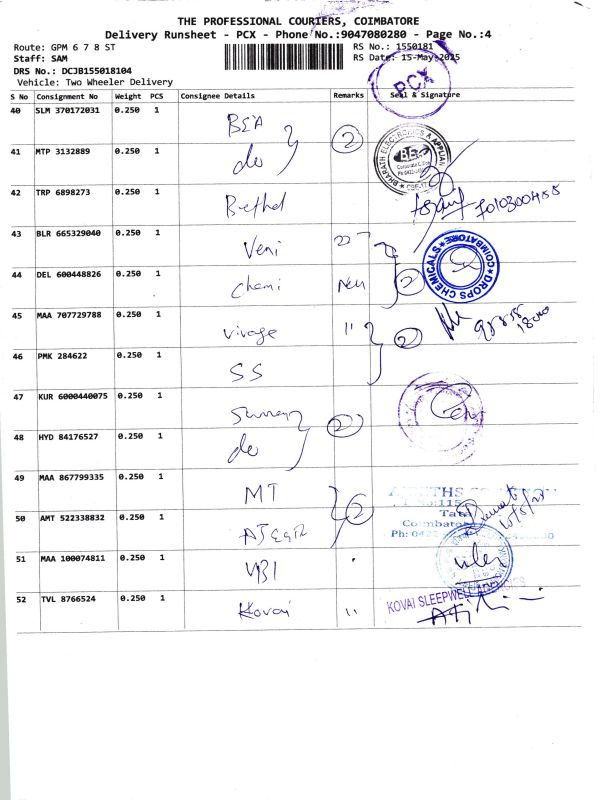 THE PROFESSIONAL COURIERS, COIMBATORE
Delivery Runsheet - PCX - Phone No.:9047080280 - Page No.:4
Route: GPM 6 7 8 ST
RS No.: 1550181
Staff: SAM
RS Date: 15-May-2025
DRS No.: DCJB155018104
Vehicle: Two Wheeler Delivery
S No Consignment No Weight PCS Consignee Details Remarks Seal & Signature
PCX
40 SLM 370172031 0.250 1 BEA
2
BHARATH ELECTRONICS & APPLIAN
41 MTP 3132889 0.250 1 do
42 TRP 6898273 0.250 1 Bethel
43 BLR 665329040 0.250 1 Veni
DROPS CHEMICALS * COIMBATORE
44 DEL 600448826 0.250 1 Chemi
2
45 MAA 707729788 0.250 1 Virage "
2
46 PMK 284622 0.250 1 SS
47 KUR 6000440075 0.250 1
2
48 HYD 84176527 0.250 1 do
49 MAA 867799335 0.250 1 MT
2
50 AMT 522338832 0.250 1
Coimbator
Ph: 0422
51 MAA 100074811 0.250 1 VBI
52 TVL 8766524 0.250 1 Kovai "
KOVAI SLEEPWELL